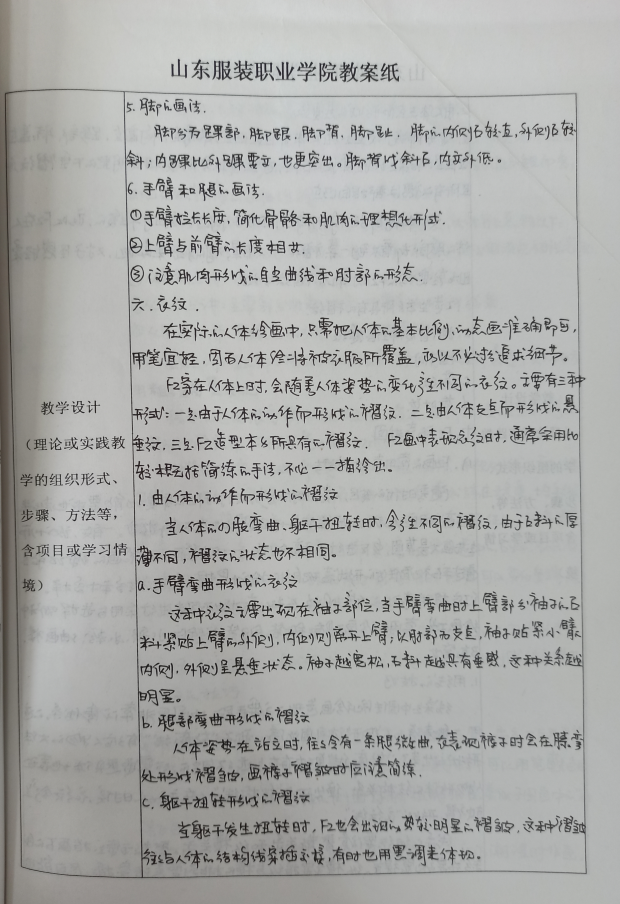 山东服装职业学院教案纸
教学设计
（理论或实践教
学的组织形式、
步骤、方法等，
含项目或学习情
境）
5. 脚的画法.
脚分为踝部，脚跟，脚背，脚趾．脚的内侧较直，外侧较
斜；内踝比外踝要高，也更突出。脚背成斜面，内高外低。
6. 手臂和腿的画法.
①手臂长度，简化骨骼和肌肉的理想化形式.
②上臂与前臂的长度相等.
③注意肌肉形成的自然曲线和肘部的形态.
六. 衣纹.
在实际的人体绘画中，只需把人体的基本比例，动态画准确即可，
用笔宜轻，因为人体终将被衣服所覆盖，所以不必过分追求细节。
F2穿在人体上时，会随着人体姿势的变化产生不同的衣纹。主要有三种
形式：一是由于人体的动作而形成的褶纹．二是由人体支点而形成的悬
垂纹，三是F2造型本身所具有的褶纹．F2画中表现衣纹时，通常采用比
较概括简练的手法，不必一一描绘出。
1. 由人体的动作而形成的褶纹
当人体的四肢弯曲、躯干扭转时，会产生不同的褶纹，由于面料的厚
薄不同，褶纹的状态也不相同。
a. 手臂弯曲形成的衣纹
这种衣纹主要出现在袖子部位，当手臂弯曲时上臂部分袖子的面
料紧贴上臂的外侧，内侧则离开上臂；以肘部为支点，袖子贴紧小臂
内侧，外侧呈悬垂状态。袖子越宽松，面料越具有垂感，这种关系越
明显。
b. 腿部弯曲形成的褶纹
人体姿势在站立时，往往会有一条腿微曲，在表现裤子时会在膝弯
处形成褶皱，画裤子褶皱时应注意简练.
c. 躯干扭转形成的褶纹
当躯干发生扭转时，F2也会出现较明显的褶皱，这种褶皱
往往与人体的结构线穿插交接，有时也用黑调来体现。